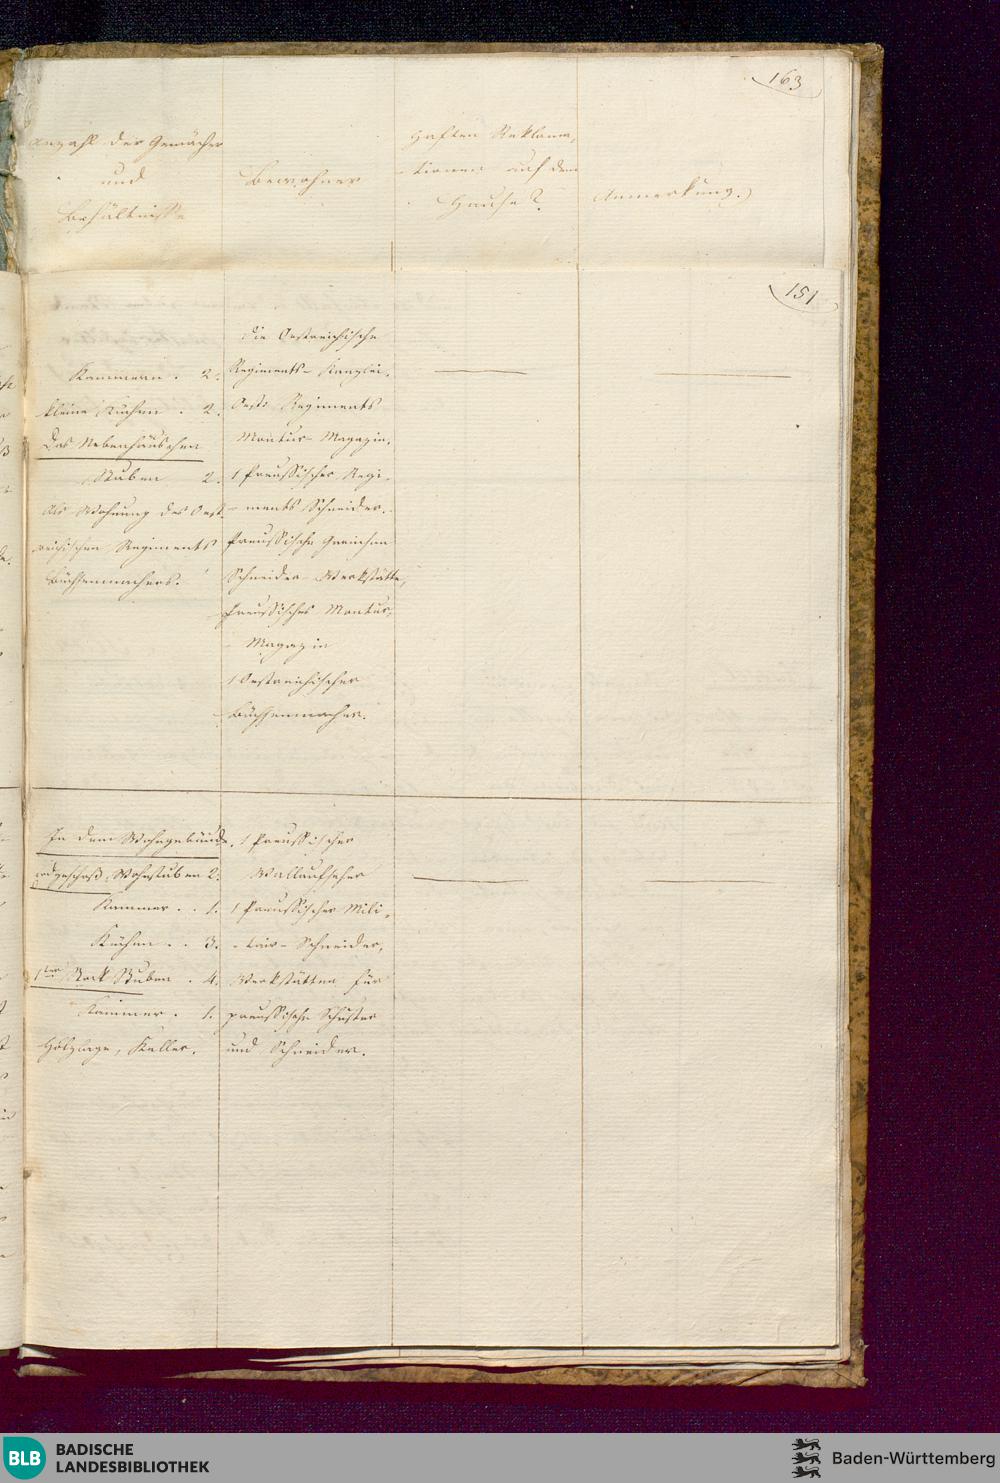 163
Anzahl der Gemächer
und
Behältnisse
Bewohner
Haften Reklama-
tionen auf dem
Hause?
Anmerkung.
151
Kammern . 2.
kleine Kuchen . 2.
Das Nebenhäuschen
Stuben 2.
Als Wohnung des Oest-
reichischen Regiments
Büchsenmachers.
die Oestreichische
Regiments-Kanzlei.
Oestr. Regiments
Montur-Magazin.
1 Preussischer Regi-
ments Schneider.
Preussische
Schneider-Werkstätte,
Preussisches Montur-
Magazin
1 Oestreichischer
Büchsenmacher.
In dem Wohngebäude.
Erdgeschoß, Wohnstuben 2.
Kammer . . 1.
Küchen . . 3.
1ter Stock Stuben . 4.
Kammer . 1.
Holzlage, Keller.
1 Preussischer
Wallaufseher
1 Preussischer Mili-
tair-Schneider,
Werkstätten für
preussische Schuster
und Schneider.
BLB BADISCHE
LANDESBIBLIOTHEK
Baden-Württemberg